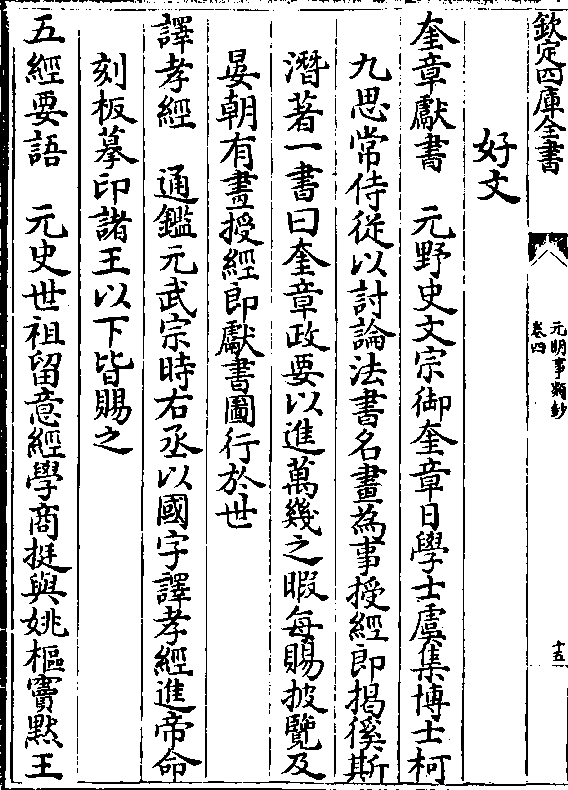 欽定四庫全書
元明事類鈔
卷四
十五
好文
奎章獻書　元野史文宗御奎章日學士虞集博士柯
九思常侍從以討論法書名畫為事授經郎揭徯斯
潛著一書曰奎章政要以進萬幾之暇每賜披覽及
晏朝有畫授經郎獻書圖行於世
譯孝經　通鑑元武宗時右丞以國字譯孝經進帝命
刻板摹印諸王以下皆賜之
五經要語　元史世祖留意經學商挺與姚樞竇默王